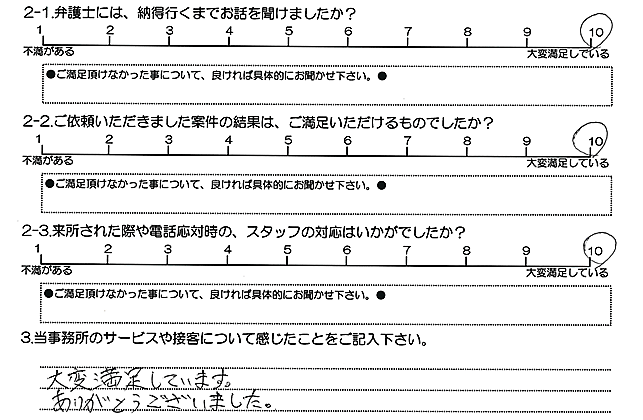 2-1.弁護士には、納得行くまでお話を聞けましたか？
1 2 3 4 5 6 7 8 9 10
不満がある 大変満足している
●ご満足頂けなかった事について、良ければ具体的にお聞かせ下さい。●
2-2.ご依頼いただきました案件の結果は、ご満足いただけるものでしたか？
1 2 3 4 5 6 7 8 9 10
不満がある 大変満足している
●ご満足頂けなかった事について、良ければ具体的にお聞かせ下さい。●
2-3.来所された際や電話応対時の、スタッフの対応はいかがでしたか？
1 2 3 4 5 6 7 8 9 10
不満がある 大変満足している
●ご満足頂けなかった事について、良ければ具体的にお聞かせ下さい。●
3.当事務所のサービスや接客について感じたことをご記入下さい。
大変満足しています。
ありがとうございました。